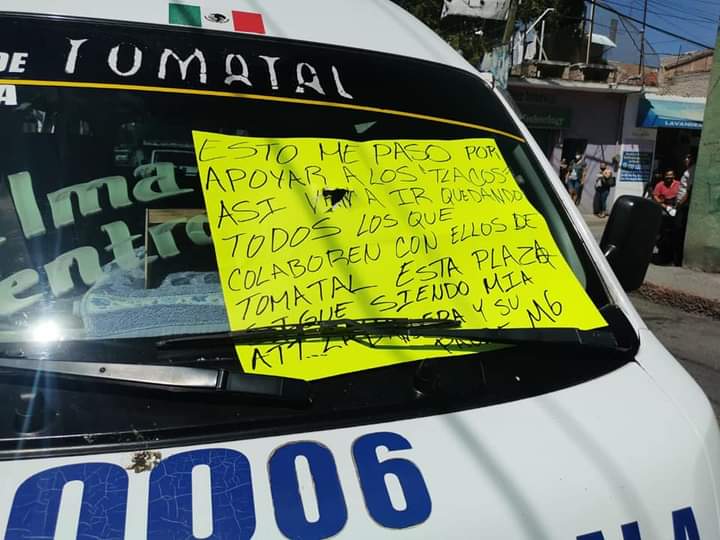 DE TOMATAL
A
Alma
Centro
ESTO ME PASO POR
APOYAR A LOS "TLACOS"
ASI VAN A IR QUEDANDO
TODOS LOS QUE
COLABOREN CON ELLOS DE
TOMATAL ESTA PLAZA
SIGUE SIENDO MIA
ATT... Y SU
MG
0006
LAVANDER
ALA